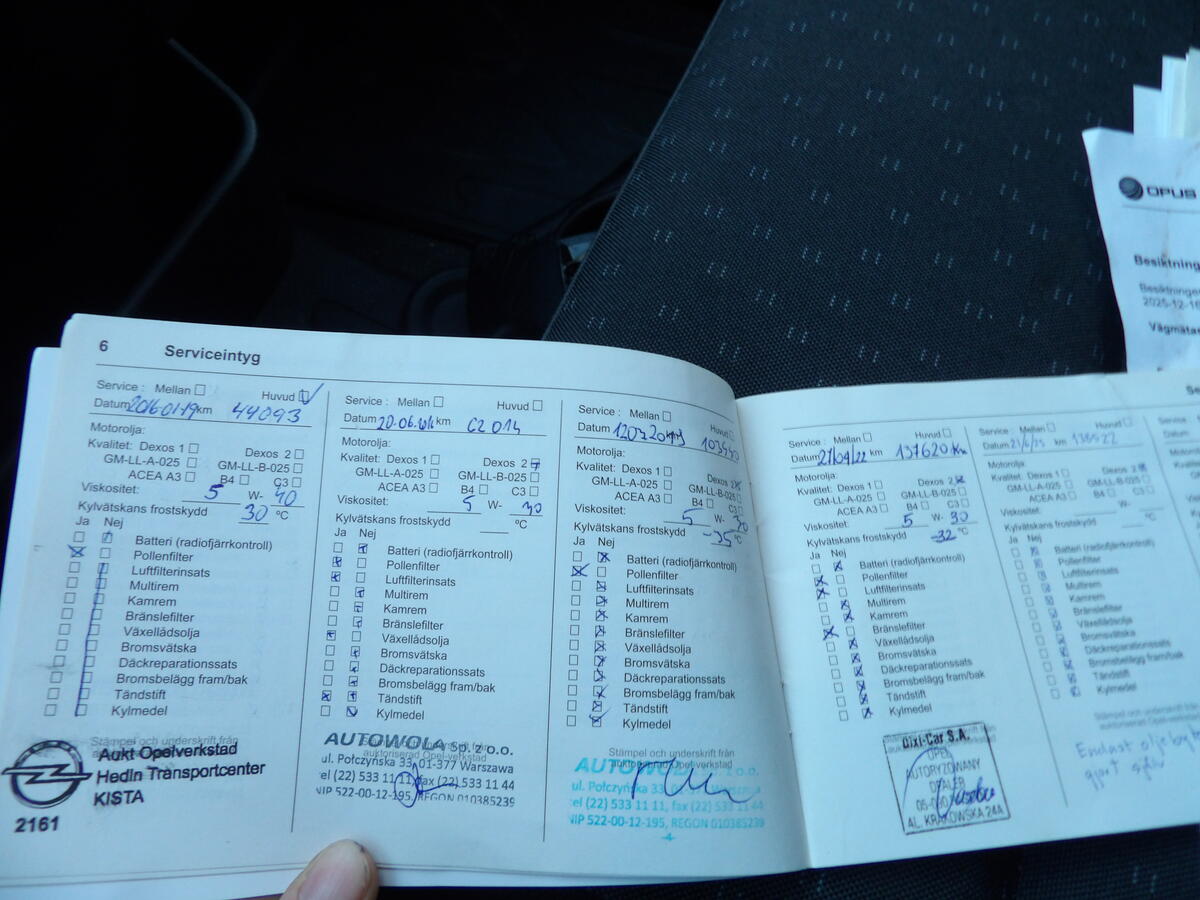 6 Serviceintyg
Service : Mellan ☐ Huvud ☑
Datum 2016-01-19 km 44093
Motorolja:
Kvalitet: Dexos 1 ☐ Dexos 2 ☐
GM-LL-A-025 ☐ GM-LL-B-025 ☐
ACEA A3 ☐ B4 ☐ C3 ☐
Viskositet: 5 W- 40
Kylvätskans frostskydd 30 °C
Ja Nej
Batteri (radiofjärrkontroll)
Pollenfilter
Luftfilterinsats
Multirem
Kamrem
Bränslefilter
Växellådsolja
Bromsvätska
Däckreparationssats
Bromsbelägg fram/bak
Tändstift
Kylmedel
Stämpel och underskrift från
Aukt Opelverkstad
Hedin Transportcenter
KISTA
2161
Service : Mellan ☐ Huvud ☐
Datum 20.06. km 62014
Motorolja:
Kvalitet: Dexos 1 ☐ Dexos 2
GM-LL-A-025 ☐ GM-LL-B-025 ☐
ACEA A3 ☐ B4 ☐ C3 ☐
Viskositet: 5 W- 30
Kylvätskans frostskydd °C
Ja Nej
Batteri (radiofjärrkontroll)
Pollenfilter
Luftfilterinsats
Multirem
Kamrem
Bränslefilter
Växellådsolja
Bromsvätska
Däckreparationssats
Bromsbelägg fram/bak
Tändstift
Kylmedel
AUTOWOLA Sp. z o.o.
ul. Połczyńska 33, 01-377 Warszawa
tel (22) 533 11 11, fax (22) 533 11 44
NIP 522-00-12-195, REGON 010385239
Service : Mellan ☐ Huvud
Datum km
Motorolja:
Kvalitet: Dexos 1 ☐ Dexos 2
GM-LL-A-025 ☐ GM-LL-B-025
ACEA A3 ☐ B4 ☐ C3
Viskositet: 5 W- 30
Kylvätskans frostskydd -35 °C
Ja Nej
Batteri (radiofjärrkontroll)
Pollenfilter
Luftfilterinsats
Multirem
Kamrem
Bränslefilter
Växellådsolja
Bromsvätska
Däckreparationssats
Bromsbelägg fram/bak
Tändstift
Kylmedel
Stämpel och underskrift från
auktoriserad Opel-verkstad
AUTOWOLA Sp. z o.o.
ul. Połczyńska 33, Warszawa
tel (22) 533 11 11, fax (22) 533 11 44
NIP 522-00-12-195, REGON 010385239
Service : Mellan ☐ Huvud ☐
Datum 21/04/22 km 137620 km
Motorolja:
Kvalitet: Dexos 1 ☐ Dexos 2
GM-LL-A-025 ☐ GM-LL-B-025 ☐
ACEA A3 ☐ B4 ☐ C3 ☐
Viskositet: 5 W- 30
Kylvätskans frostskydd -32 °C
Ja Nej
Batteri (radiofjärrkontroll)
Pollenfilter
Luftfilterinsats
Multirem
Kamrem
Bränslefilter
Växellådsolja
Bromsvätska
Däckreparationssats
Bromsbelägg fram/bak
Tändstift
Kylmedel
Dixi-Car S.A.
OPEL
AUTORYZOWANY
DEALER
AL. KRAKOWSKA 24A
Service : Mellan ☐ Huvud ☐
Datum 21/6/25 km
Motorolja:
Kvalitet: Dexos 1 ☐ Dexos 2
GM-LL-A-025 ☐ GM-LL-B-025 ☐
ACEA A3 ☐ B4 ☐ C3 ☐
Viskositet: W-
Kylvätskans frostskydd °C
Ja Nej
Batteri (radiofjärrkontroll)
Pollenfilter
Luftfilterinsats
Multirem
Kamrem
Bränslefilter
Växellådsolja
Bromsvätska
Däckreparationssats
Bromsbelägg fram/bak
Tändstift
Kylmedel
Stämpel och underskrift från
auktoriserad Opel-verkstad
Endast
OPUS
Besiktning
Besiktningen
2025-12-16
Vägmätar